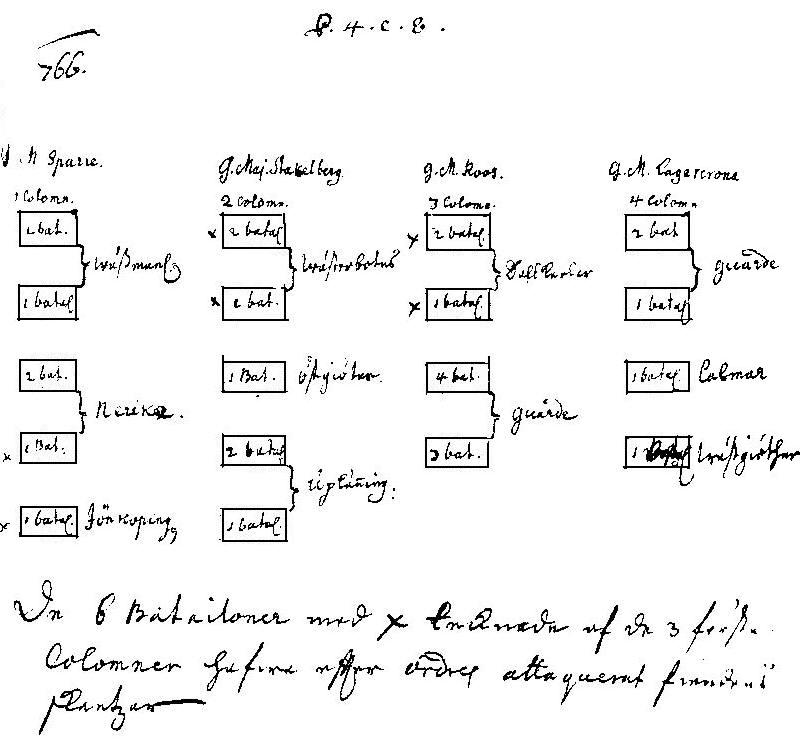 P. 4. C. E.
766.
M Sparre.
1 Colomn.
1 bat.
1 batal
Wäßmanl
2 bat.
1 Bat.
Nerike.
1 batal
Jönkoping
G. Maj. Stakelberg
2 Colomn.
x 2 batal
x 1 bat.
Wästerbotns
1 Bat.
Östgiötar.
2 batal
1 batal.
Upläning:
G. M. Roos.
3 Colomn.
x 2 batal
x 1 batal
Dallkarlar
4 bat.
3 bat.
guarde
G. M. Lagercrona
4 Colomn
2 bat
1 batal
guarde
1 batal
Calmar
1 batal
Wäßgiöther
De 6 Batailoner med x tecknade af de 3 förste
Colomner hafwa effter ordres attaquerat fiendens
Skantzar